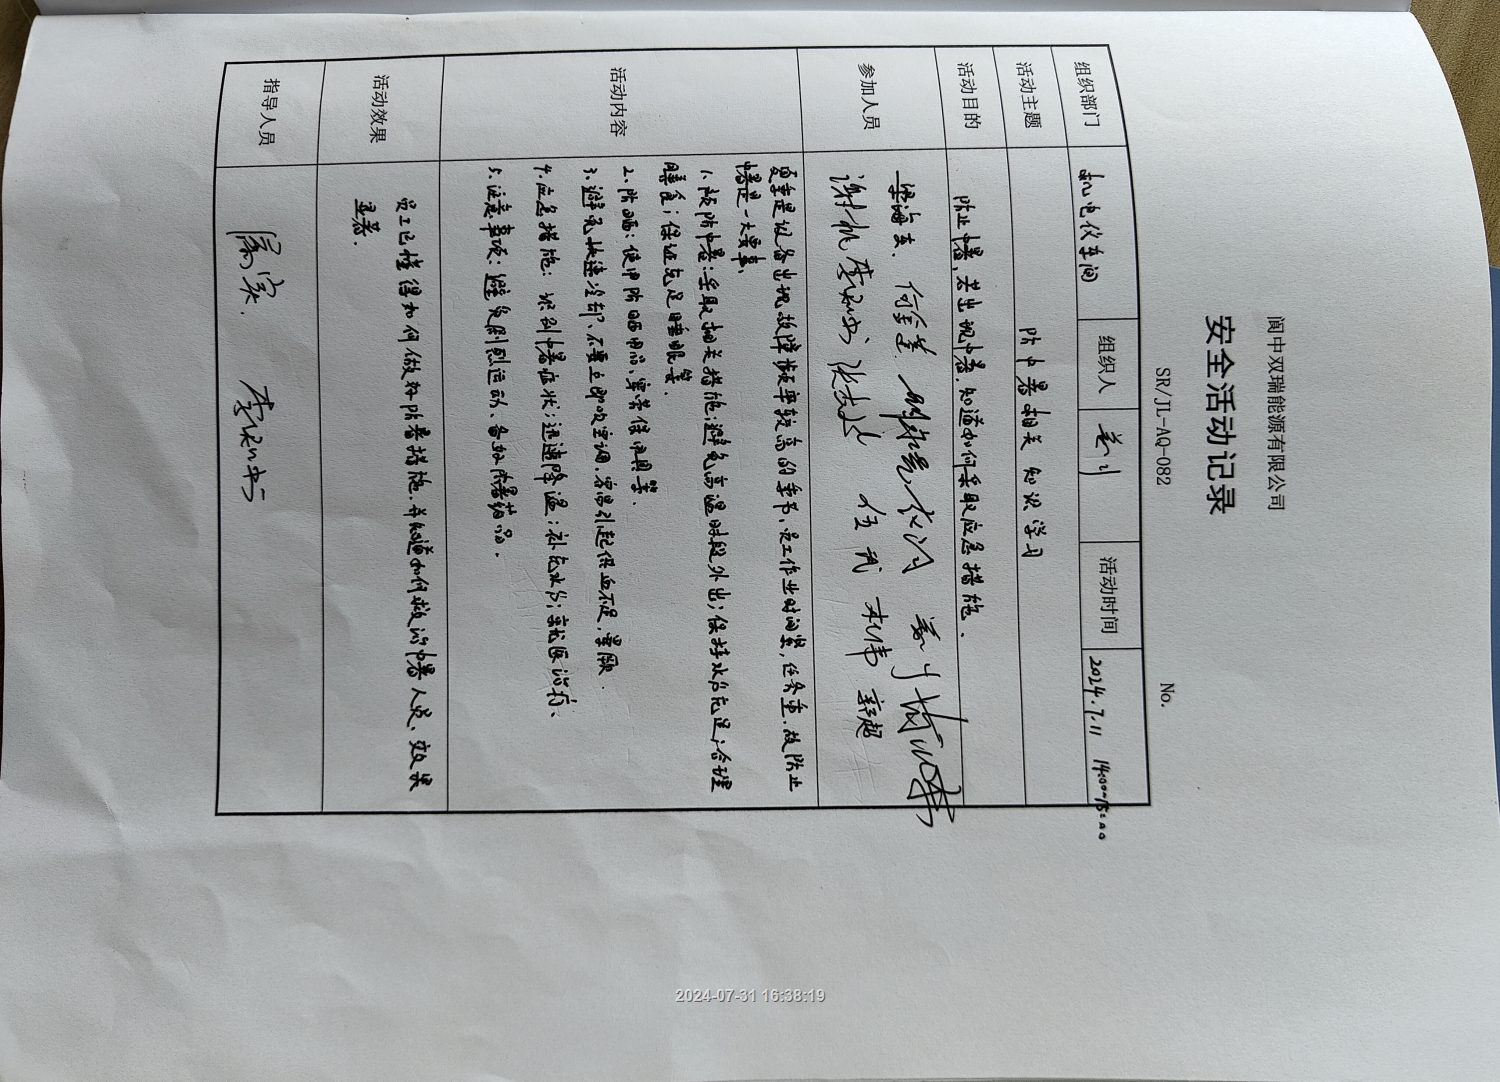 阆中双瑞能源有限公司
安全活动记录
SR/JL-AQ-082 No.
组织部门 机电仪车间 组织人 活动时间 2024.7.11 14:00-15:00
活动主题 防中暑相关知识学习
活动目的 防止中暑,若出现中暑,知道如何采取应急措施、
参加人员 梁海东、
任武 杜伟
活动内容
夏季是设备出现故障频率较高的季节、员工作业时间紧,任务重.故防止
中暑是一大要事、
1.预防中暑:采取相关措施;避免高温时段外出;保持水分充足;合理
膳食;保证充足睡眠等.
2、防晒:使用防晒用品、穿劳保用具等.
3、避免快速冷却、不要立即吹空调.容易引起供血不足,晕厥.
4.应急措施:识别中暑症状;迅速降温;补充水分;就医治疗、
5.注意事项:避免剧烈运动、备好防暑药品.
活动效果
员工已懂得如何做好防暑措施.并知道如何救治中暑人员、效果
显著.
指导人员
2024-07-31 16:38:19